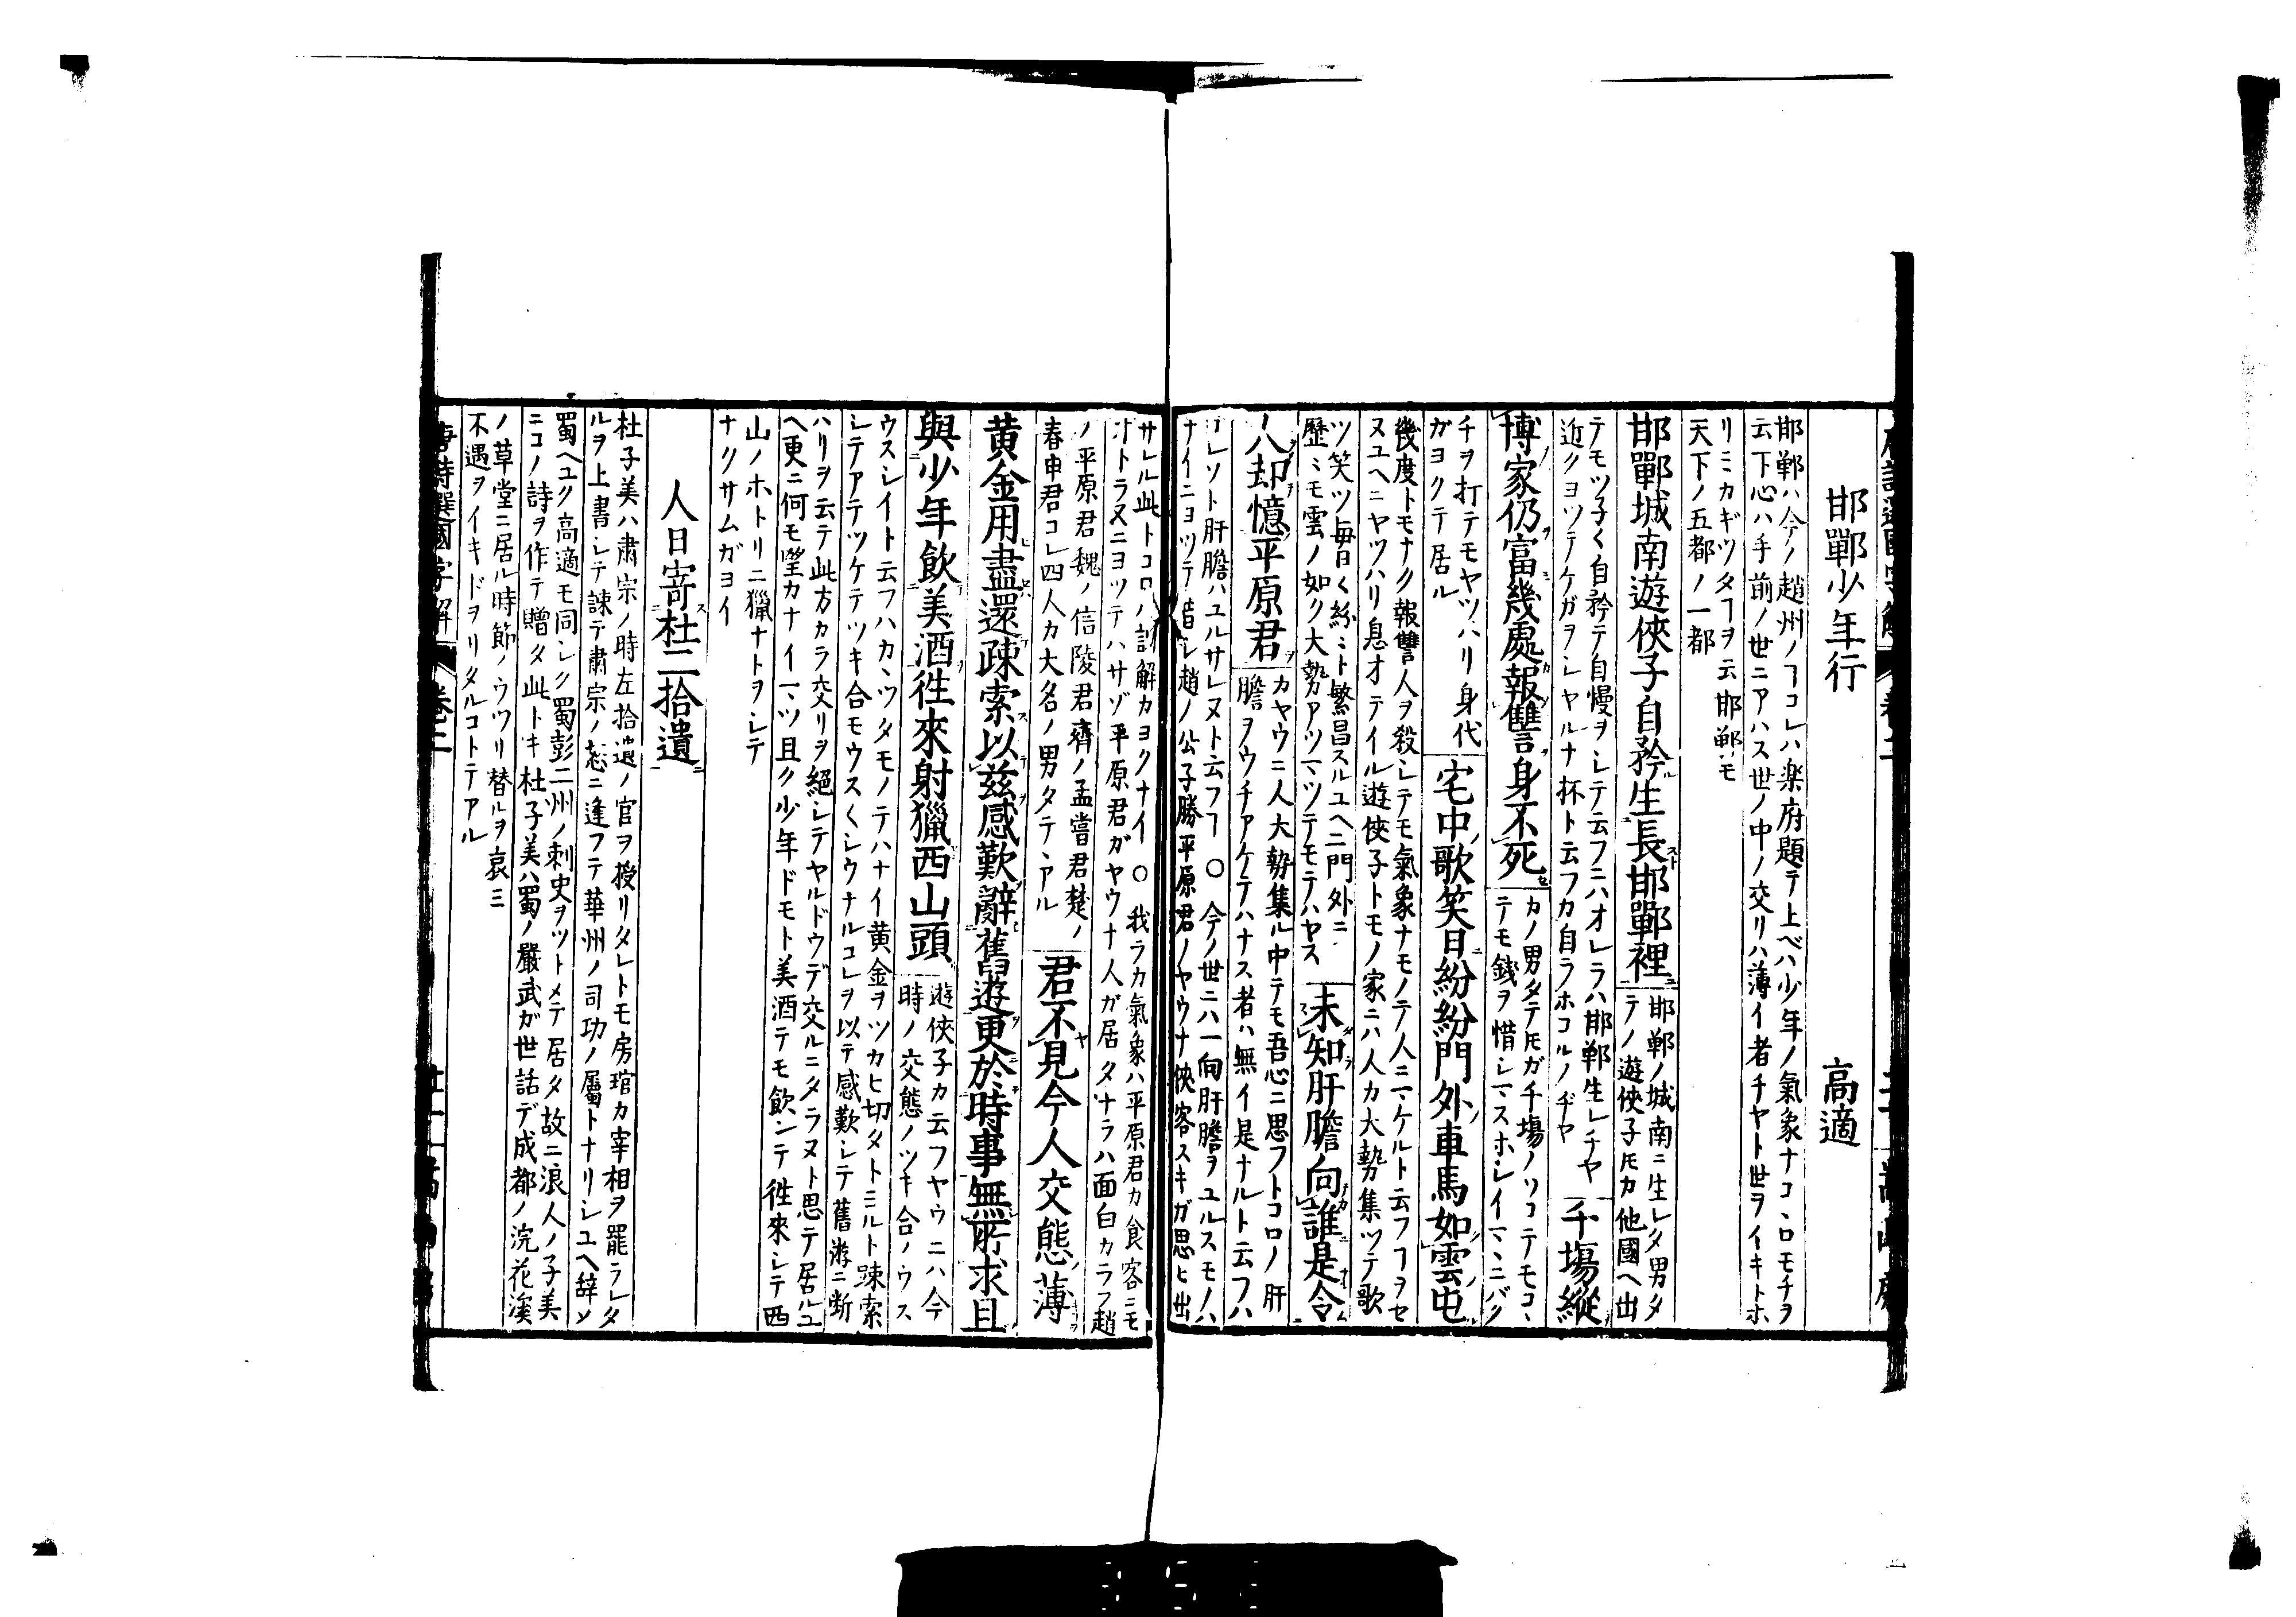 邯鄲少年行　高適
邯鄲ハ今ノ趙州ノヿコレハ楽府題テ上ベハ少年ノ氣象ナコヽロモチヲ
云下心ハ手前ノ世ニアハス世ノ中ノ交リハ薄イ者チヤト世ヲイキトホ
リミカギツタヿヲ云邯鄲モ
天下ノ五都ノ一都
邯鄲城南遊俠子自矜生長邯鄲裡
邯鄲ノ城南ニ生レタ男タ
テノ遊俠子𪜈カ他國ヘ出
テモツ子〱自矜テ自慢ヲレテ云フニハオレラハ邯鄲生レチヤ
近クヨツテケガヲレヤルナ抔ト云フカ自ラホコルノヂヤ
千塲縱
博家仍富幾處報讐身不死
カノ男タテ𪜈ガ千塲ノソコテモコヽ
テモ錢ヲ惜レマスホレイマヽニバク
チヲ打テモヤツハリ身代
ガヨクテ居ル
宅中歌笑日紛紛門外車馬如雲屯
幾度トモナク報讐人ヲ殺レテモ氣象ナモノテ人ニマケルト云フヿヲセ
ヌユヘニヤツハリ息オテイル遊俠子トモノ家ニハ人カ大勢集ツテ歌
ツ笑ツ毎日〱紛ミト繁昌スルユヘニ門外ニ
歷ミモ雲ノ如ク大勢アツマツテモテハヤス
未知肝膽向誰是令
人却憶平原君
カヤウニ人大勢集ル中テモ吾心ニ思フトコロノ肝
膽ヲウチアケテハナス者ハ無イ是ナルト云フハ
レソト肝膽ハユルサレヌト云フヿ○今ノ世ニハ一向肝膽ヲユルスモノハ
ナイニヨツテ昔シ趙ノ公子勝平原君ノヤウナ俠客スキガ思ヒ出
サレル此トコロノ訓解カヨクナイ○我ラカ氣象ハ平原君カ食客ニモ
オトラヌニヨツテハサゾ平原君ガヤウナ人ガ居タナラハ面白カラフ趙
ノ平原君魏ノ信陵君齊ノ孟嘗君楚ノ
春申君コレ四人カ大名ノ男タテヽアル
君不見今人交態薄
黄金用盡還疎索以茲感歎辭舊遊更於時事無所求且
與少年飲美酒徃來射獵西山頭
遊俠子カ云フヤウニハ今
時ノ交態ノツキ合ノウス
ウスレイト云フハカヽツタモノテハナイ黄金ヲツカヒ切タトミルト踈索
レテアテツケテツキ合モウス〱レウナルコレヲ以テ感歎レテ舊遊ニ断
ハリヲ云テ此方カラ交リヲ絕レテヤルドウデ交ルニタラヌト思テ居ルユ
ヘ更ニ何モ望カナイマヽツ且ク少年ドモト美酒テモ飲ンテ徃來レテ西
山ノホトリニ獵ナトヲレテ
ナクサムガヨイ
人日寄杜二拾遺
杜子美ハ肅宗ノ時左拾遺ノ官ヲ授リタレトモ房琯カ宰相ヲ罷ラレタ
ルヲ上書レテ諫テ肅宗ノ𢗅ニ逢フテ華州ノ司功ノ屬トナリレユヘ辞〆
蜀ヘユク高適モ同レク蜀彭二州ノ刺史ヲツトメテ居タ故ニ浪人ノ子美
ニコノ詩ヲ作テ贈タ此トキ杜子美ハ蜀ノ嚴武ガ世話デ成都ノ浣花溪
ノ草堂ニ居ル時節ノウツリ替ルヲ哀ミ
不遇ヲイキドヲリタルコトテアル
唐詩選國字解　卷二